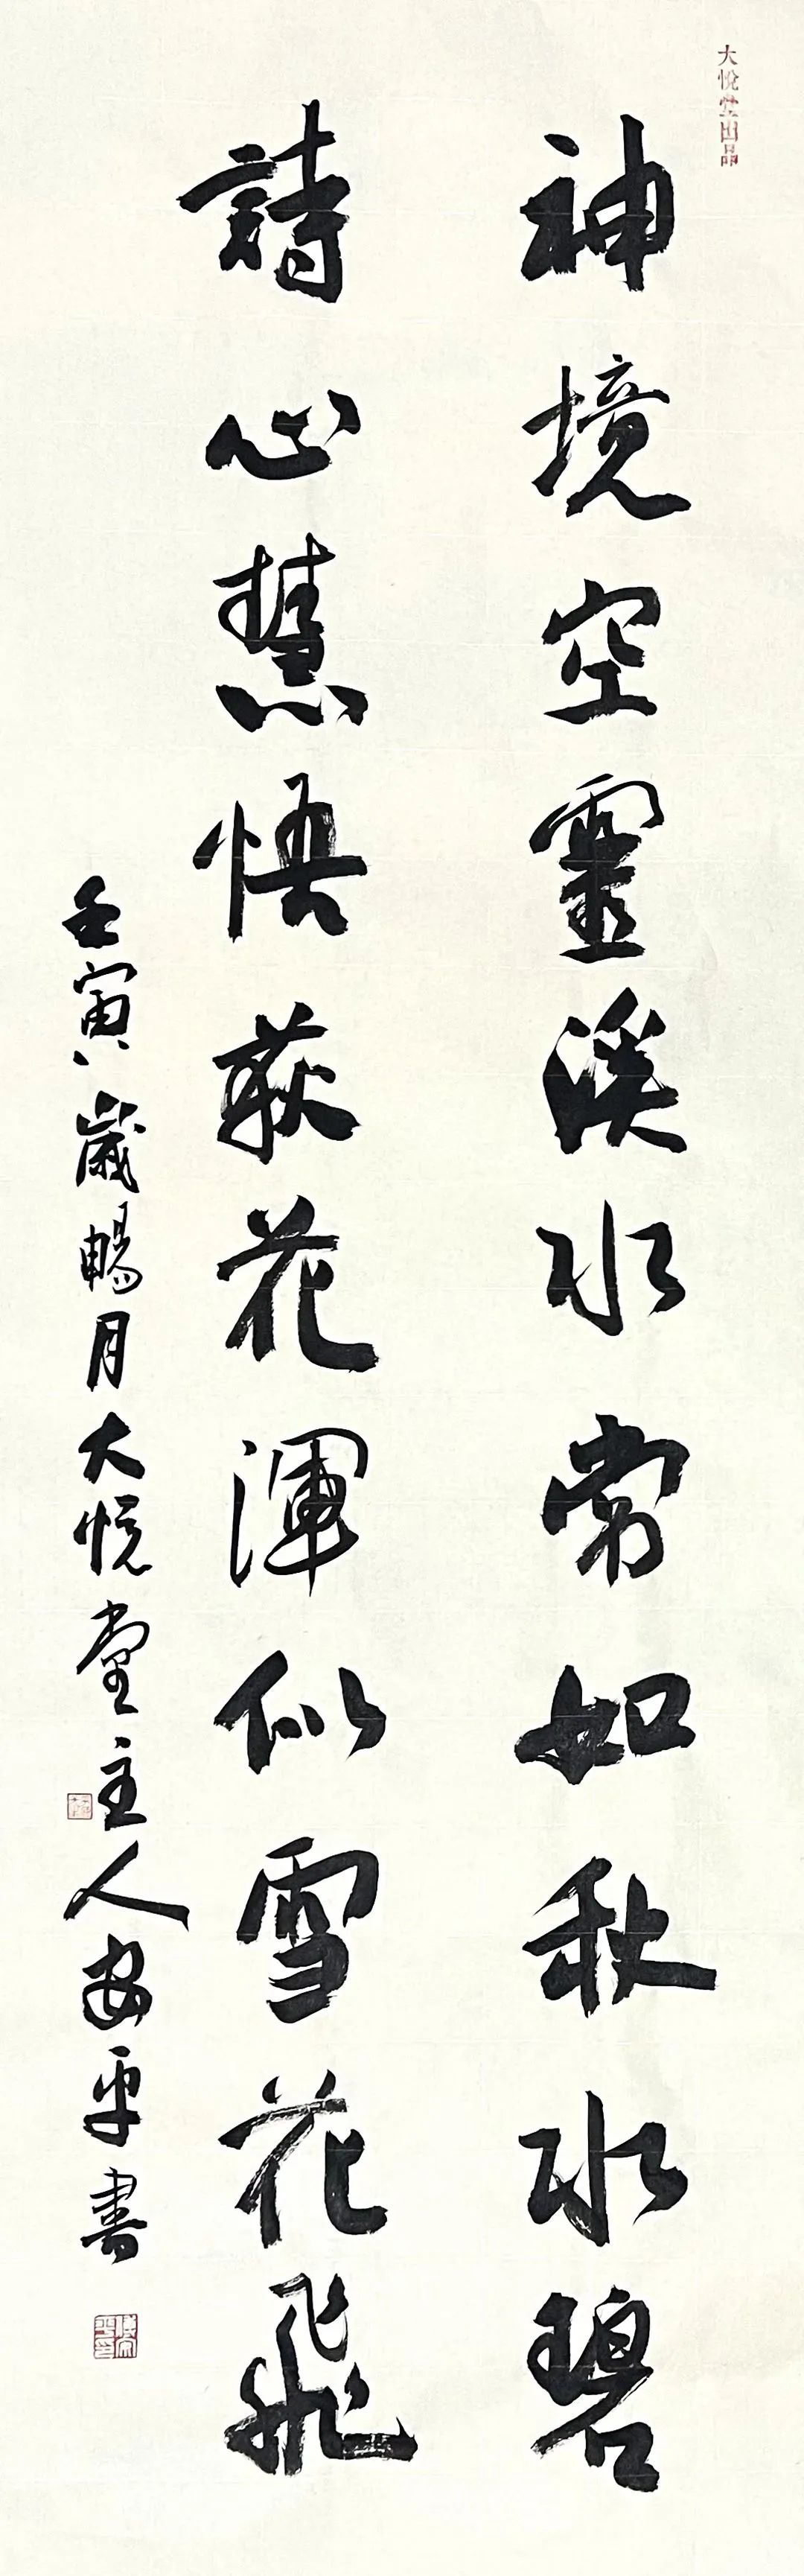 大悦堂出品
神境空靈溪水常如秋水碧
詩心慧悟荻花渾似雪花飛
壬寅歲暢月大悅堂主人安平書